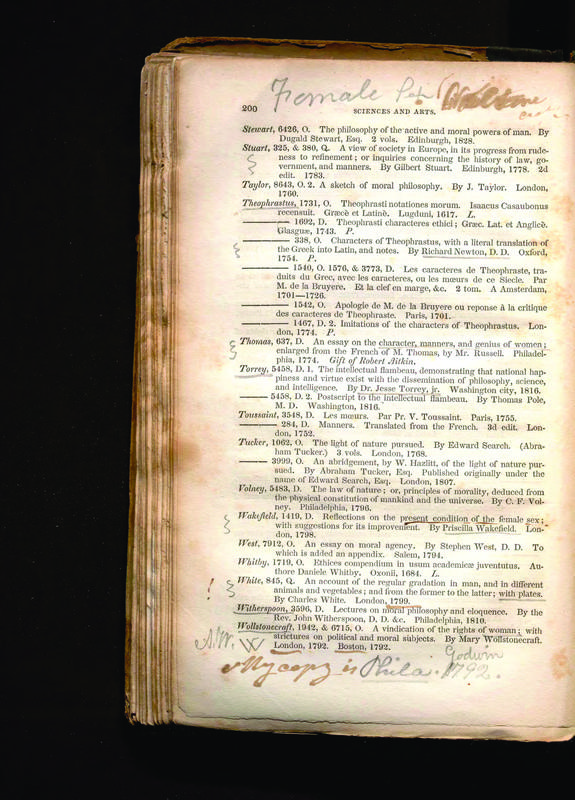 Female
200
SCIENCES AND ARTS.
Stewart, 6426, O. The philosophy of the active and moral powers of man. By
Dugald Stewart, Esq. 2 vols. Edinburgh, 1828.
Stuart, 325, & 380, Q. A view of society in Europe, in its progress from rude-
ness to refinement; or inquiries concerning the history of law, go-
vernment, and manners. By Gilbert Stuart. Edinburgh, 1778. 2d
edit. 1783.
Taylor, 8643, O. 2. A sketch of moral philosophy. By J. Taylor. London,
1760.
Theophrastus, 1731, O. Theophrasti notationes morum. Isaacus Casaubonus
recensuit. Græcè et Latinè. Lugduni, 1617. L.
——— 1692, D. Theophrasti characteres ethici; Græc. Lat. et Anglicè.
Glasguæ, 1743. P.
——— 338, O. Characters of Theophrastus, with a literal translation of
the Greek into Latin, and notes. By Richard Newton, D. D. Oxford,
1754. P.
——— 1540, O. 1576, & 3773, D. Les caracteres de Theophraste, tra-
duits du Grec, avec les caracteres, ou les mœurs de ce Siecle. Par
M. de la Bruyere. Et la clef en marge, &c. 2 tom. A Amsterdam,
1701—1726.
——— 1542, O. Apologie de M. de la Bruyere ou reponse à la critique
des caracteres de Theophraste. Paris, 1701.
——— 1467, D. 2. Imitations of the characters of Theophrastus. Lon-
don, 1774. P.
Thomas, 637, D. An essay on the character, manners, and genius of women;
enlarged from the French of M. Thomas, by Mr. Russell. Philadel-
phia, 1774. Gift of Robert Aitkin.
Torrey, 5458, D. 1. The intellectual flambeau, demonstrating that national hap-
piness and virtue exist with the dissemination of philosophy, science,
and intelligence. By Dr. Jesse Torrey, jr. Washington city, 1816.
——— 5458, D. 2. Postscript to the intellectual flambeau. By Thomas Pole,
M. D. Washington, 1816.
Toussaint, 3548, D. Les mœurs. Par Pr. V. Toussaint. Paris, 1755.
——— 284, D. Manners. Translated from the French. 3d edit. Lon-
don, 1752.
Tucker, 1062, O. The light of nature pursued. By Edward Search. (Abra-
ham Tucker.) 3 vols. London, 1768.
——— 3999, O. An abridgement, by W. Hazlitt, of the light of nature pur-
sued. By Abraham Tucker, Esq. Published originally under the
name of Edward Search, Esq. London, 1807.
Volney, 5483, D. The law of nature; or, principles of morality, deduced from
the physical constitution of mankind and the universe. By C. F. Vol-
ney. Philadelphia, 1796.
Wakefield, 1419, D. Reflections on the present condition of the female sex;
with suggestions for its improvement. By Priscilla Wakefield. Lon-
don, 1798.
West, 7912, O. An essay on moral agency. By Stephen West, D. D. To
which is added an appendix. Salem, 1794.
Whitby, 1719, O. Ethices compendium in usum academicæ juventutus. Au-
thore Daniele Whitby. Oxonii, 1684. L.
! White, 845, Q. An account of the regular gradation in man, and in different
animals and vegetables; and from the former to the latter; with plates.
By Charles White. London, 1799.
Witherspoon, 3596, D. Lectures on moral philosophy and eloquence. By the
Rev. John Witherspoon, D. D. &c. Philadelphia, 1810.
Wollstonecraft, 1942, & 6715, O. A vindication of the rights of woman; with
strictures on political and moral subjects. By Mary Wollstonecraft.
London, 1792. Boston, 1792.
Godwin
My copy is Phila. 1792.